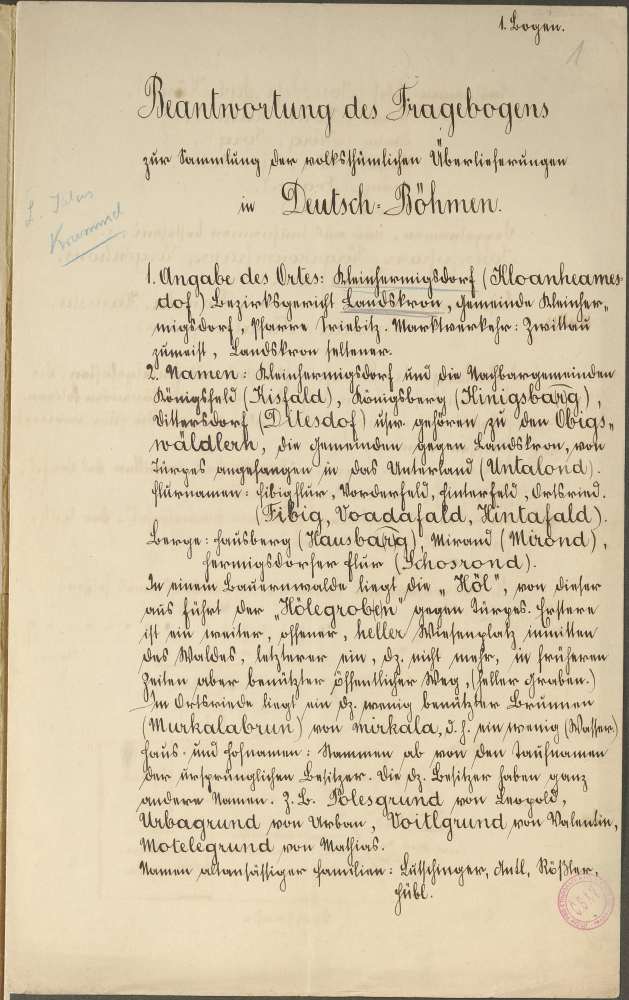 1. Bogen.
1
Beantwortung des Fragebogens
zur Sammlung der volksthümlichen Überlieferungen
in Deutsch-Böhmen.
1. Angabe des Ortes: Kleinhermigsdorf (Kloanheames-
dof) Bezirksgericht Landskron, Gemeinde Kleinher-
migsdorf, Pfarre Triebitz. Marktverkehr: Zwittau
zumeist, Landskron seltener.
2. Namen: Kleinhermigsdorf und die Nachbargemeinden
Königsfeld (Kisfald), Königsberg (Kinigsbarig),
Dittersdorf (Ditesdof) usw. gehören zu den Obigs-
wäldlern, die Gemeinden gegen Landskron, von
Türpes angefangen in das Unterland (Untalond).
Flurnamen: Fibigflur, Vorderfeld, Hinterfeld, Ortsried.
(Fibig, Voadafald, Hintafald).
Berge: Hausberg (Hausbarig), Mirand (Mirond),
Hermigsdorfer Flur (Schosrond).
In einem Bauernwalde liegt die "Höl", von dieser
aus führt der "Hölegroben" gegen Türpes. Erstere
ist ein weiter, offener, heller Wiesenplatz inmitten
des Waldes, letzterer ein, dz. nicht mehr, in früheren
Zeiten aber benützter öffentlicher Weg, (heller Graben.)
Im Ortsriede liegt ein dz. wenig benützter Brunnen
(Murkalabrun) von mirkala, d. h. ein wenig (Wasser.)
Haus- und Hofnamen: Stammen ab von den Taufnamen
der ursprünglichen Besitzer. Die dz. Besitzer haben ganz
andere Namen. Z. B. Polesgrund von Leopold,
Urbagrund von Urban, Voitlgrund von Valentin,
Motelegrund von Mathias.
Namen altansässiger Familien: Lutschinger, Antl, Rößler,
Hübl.